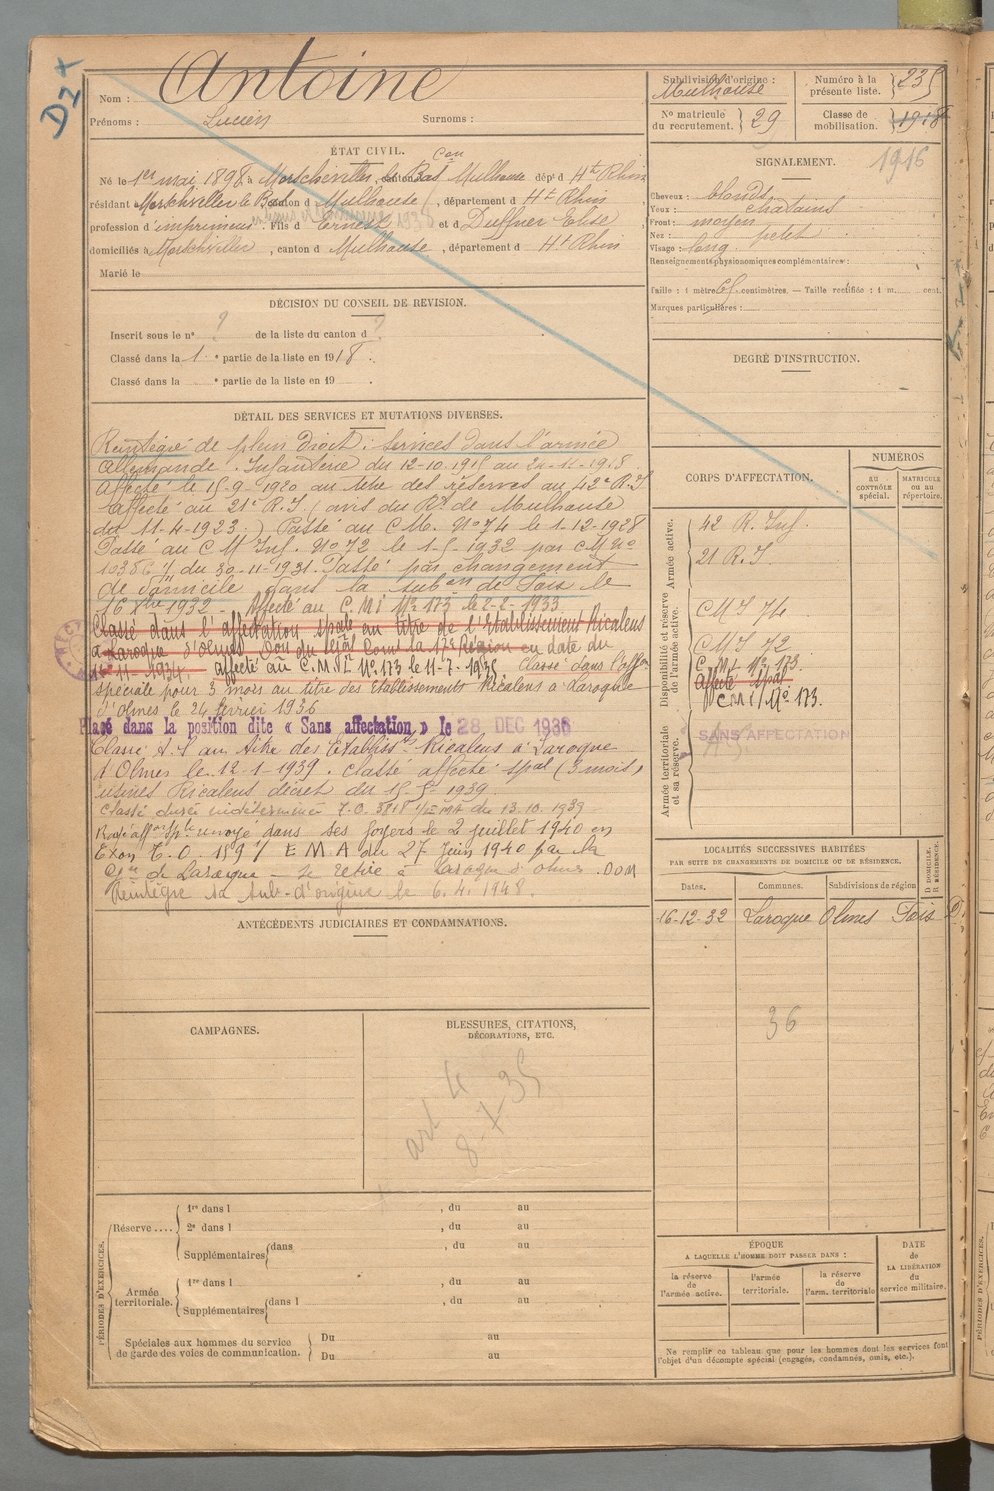 D2+
Nom : Antoine
Prénoms : Lucien Surnoms :
ÉTAT CIVIL.
Né le 1er mai 1898 à Morschwiller, canton Mulhouse dépt d Ht Rhin
résidant Morschwiller le Bas canton d Mulhouse, département d Ht Rhin
profession d'imprimeur. Fils d Ernest et d Duffner Elise
domiciliés à Morschviller, canton d Mulhouse, département d Ht Rhin
Marié le
DÉCISION DU CONSEIL DE REVISION.
Inscrit sous le n° ? de la liste du canton d ?
Classé dans la 1 e partie de la liste en 1918.
Classé dans la e partie de la liste en 19 .
DÉTAIL DES SERVICES ET MUTATIONS DIVERSES.
Réintégré de plein Droit : Services dans l'armée
Allemande. Infanterie du 12-10-191 au 24-11-1918
Affecté le 15-9-1920 au titre des réserves au 42e R.I
Affecté au 21e R.I (avis du Rt de Mulhouse
du 11-4-1923.) Passé au C.M. No 74 le 1-12-1928
Passé au C M Inf. No 72 le 1-5-1932 par CM no
du 30-11-1931. Passé par changement
de domicile dans la subon de Foix le
16 Xbre 1932. Affecté au C.M I No 173 le 2-2-1933
Classé dans l'affectation spale au titre de l'Etablissement Ricalens
à Laroque d'Olmes Don du Gal Comt la 17e Région en date du
11-1934. affecté au C.M.I. No 173 le 11-7-1935 Classé dans l'affon
spéciale pour 3 mois au titre des Etablissements Ricalens à Laroque
d'Olmes le 24 février 1936
Placé dans la position dite « Sans affectation » le 28 DEC 1936
Classé A.S au titre des Etablissts Ricalens à Laroque
d'Olmes le 12-1-1939. Classé affecté spal (3 mois)
usines Ricalens décret du 15-5-1939.
Classé durée indéterminée T.O. 3818 1/EMA du 13.10.1939
Rayé affon Sple renvoyé dans ses foyers le 2 juillet 1940 en
Exon T.O. 1591 E M A du 27 Juin 1940 par la
de Laroque — se retire à Laroque d'Olmes. DOM
Réintègre sa Sub. d'origine le 6.4.1948.
ANTÉCÉDENTS JUDICIAIRES ET CONDAMNATIONS.
CAMPAGNES.
BLESSURES, CITATIONS,
DÉCORATIONS, ETC.
art 4
8-7-35
PÉRIODES D'EXERCICES.
Réserve....
1re dans l , du au
2e dans l , du au
Supplémentaires dans , du au
Armée territoriale.
1re dans l , du au
Supplémentaires dans l , du au
Spéciales aux hommes du service
de garde des voies de communication.
Du au
Du au
Subdivision d'origine :
Mulhouse
Numéro à la
présente liste. 235
N° matricule
du recrutement. 29
Classe de
mobilisation. 1918
1916
SIGNALEMENT.
Cheveux : blonds
Yeux : chatains
Front : moyen
Nez : petit
Visage : long
Renseignements physionomiques complémentaires :
Taille : 1 mètre 65 centimètres. — Taille rectifiée : 1 m. cent.
Marques particulières :
DEGRÉ D'INSTRUCTION.
CORPS D'AFFECTATION.
NUMÉROS
AU CONTRÔLE spécial.
MATRICULE ou au répertoire.
Armée active.
42 R. Inf.
21 R.I.
Disponibilité et réserve
de l'armée active.
CMI 74
CMI 72
C.M.I. No 173.
Affecté spal
CMI No 173.
Armée territoriale
et sa réserve.
SANS AFFECTATION
LOCALITÉS SUCCESSIVES HABITÉES
PAR SUITE DE CHANGEMENTS DE DOMICILE OU DE RÉSIDENCE.
Dates. Communes. Subdivisions de région
D DOMICILE.
R RÉSIDENCE.
16-12-32 Laroque Olmes Foix D.
36
ÉPOQUE
A LAQUELLE L'HOMME DOIT PASSER DANS :
la réserve
de
l'armée active.
l'armée
territoriale.
la réserve
de
l'arm. territoriale
DATE
de
LA LIBÉRATION
du
service militaire.
Ne remplir ce tableau que pour les hommes dont les services font
l'objet d'un décompte spécial (engagés, condamnés, omis, etc.).